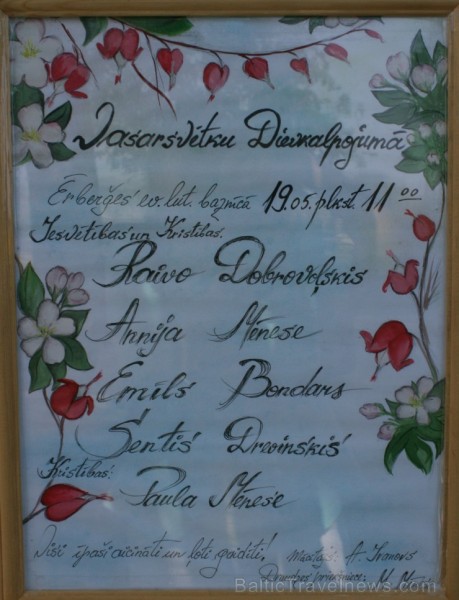 Vasarsvētku Dievkalpojumā
Ērberģes ev. lut. baznīcā 19.05. plkst. 11 00
Iesvētības un Kristības:
Raivo Dobrovoļskis
Annija Mēnese
Emīls Bondars
Sentis Drevinskis
Kristības:
Paula Mēnese
Visi īpaši aicināti un ļoti gaidīti!
Mācītājs: A. Ivanovs
Draudzes priekšniece: M.
BalticTravelNews.com